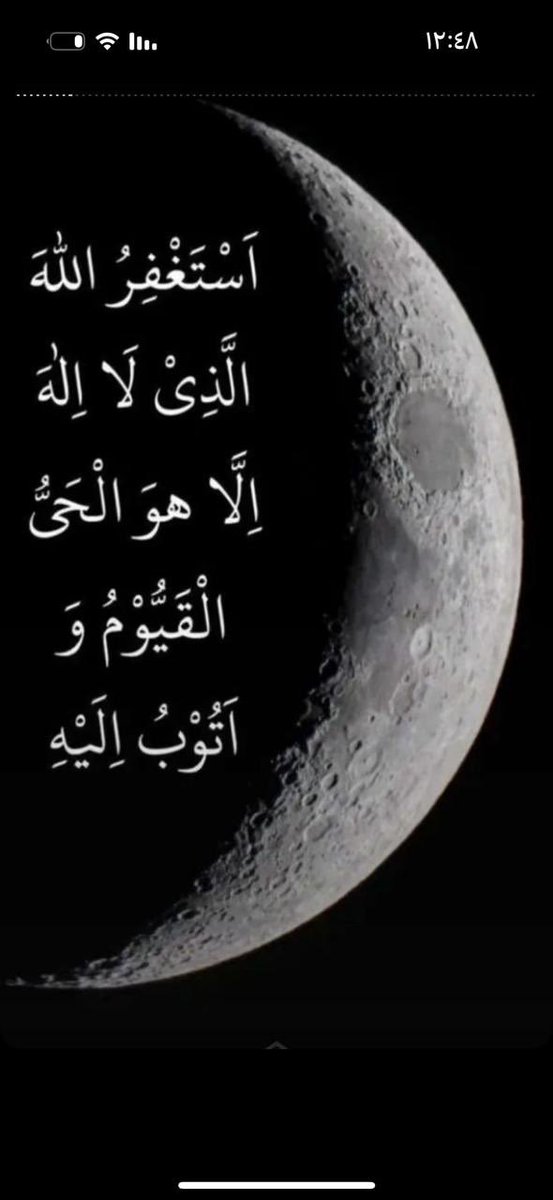 ١٢:٤٨
اَسْتَغْفِرُ اللّٰهَ
الَّذِىْ لَا اِلٰهَ
اِلَّا هوَ الْحَىُّ
الْقَيُّوْمُ وَ
اَتُوْبُ اِلَيْهِ